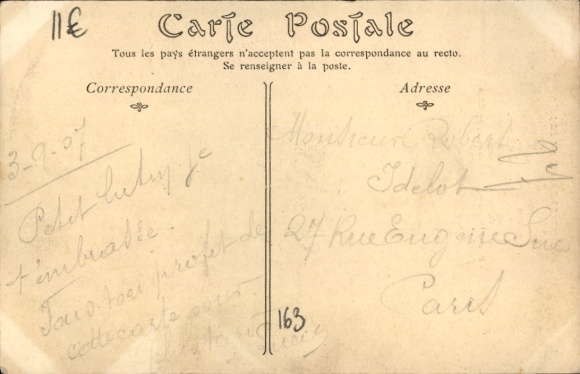 11€
Carte Postale
Tous les pays étrangers n'acceptent pas la correspondance au recto.
Se renseigner à la poste.
Correspondance
3-9-07
Petit Je
t'embrasse.
projet de
cette carte pour
163
Adresse
Monsieur Robert
Idelot
27 Rue Eugène Sue
Paris